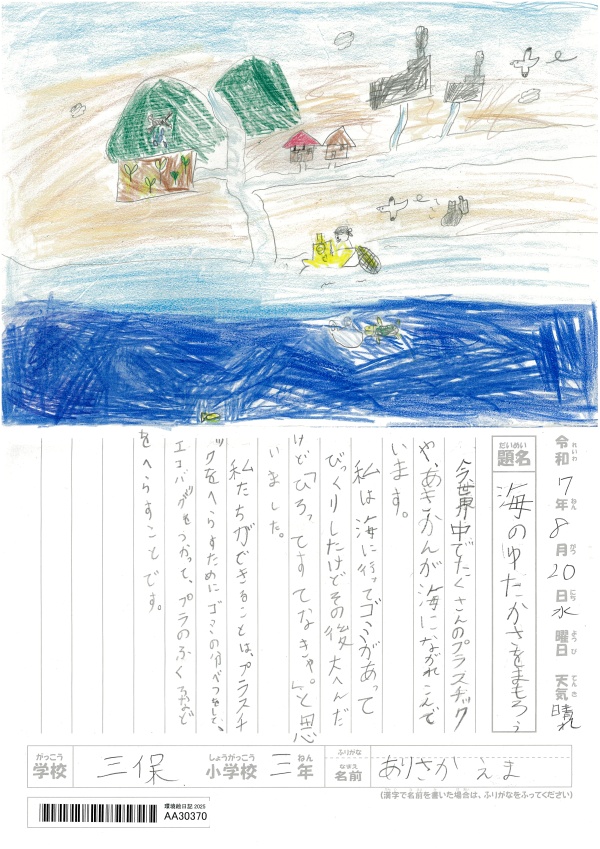 令和7年8月20日水曜日 天気 晴れ
れいわ ねん がつ にち ようび てんき
だいめい
題名 海のゆたかさをまもろう
今、世界中でたくさんのプラスチック
や、あきかんが海にながれこんで
います。
私は海に行ってゴミがあって
びっくりしたけどその後大へんだ
けど「ひろってすてなきゃ。」と思
いました。
私たちができることは、プラスチ
ックをへらすためにゴミの分べつをして、
エコバッグをつかって、プラのふくろなど
をへらすことです。
がっこう しょうがっこう ねん ふりがな なまえ
学校 三保 小学校 三年 名前 ありさか えま
(漢字で名前を書いた場合は、ふりがなをふってください)
環境絵日記2025
AA30370